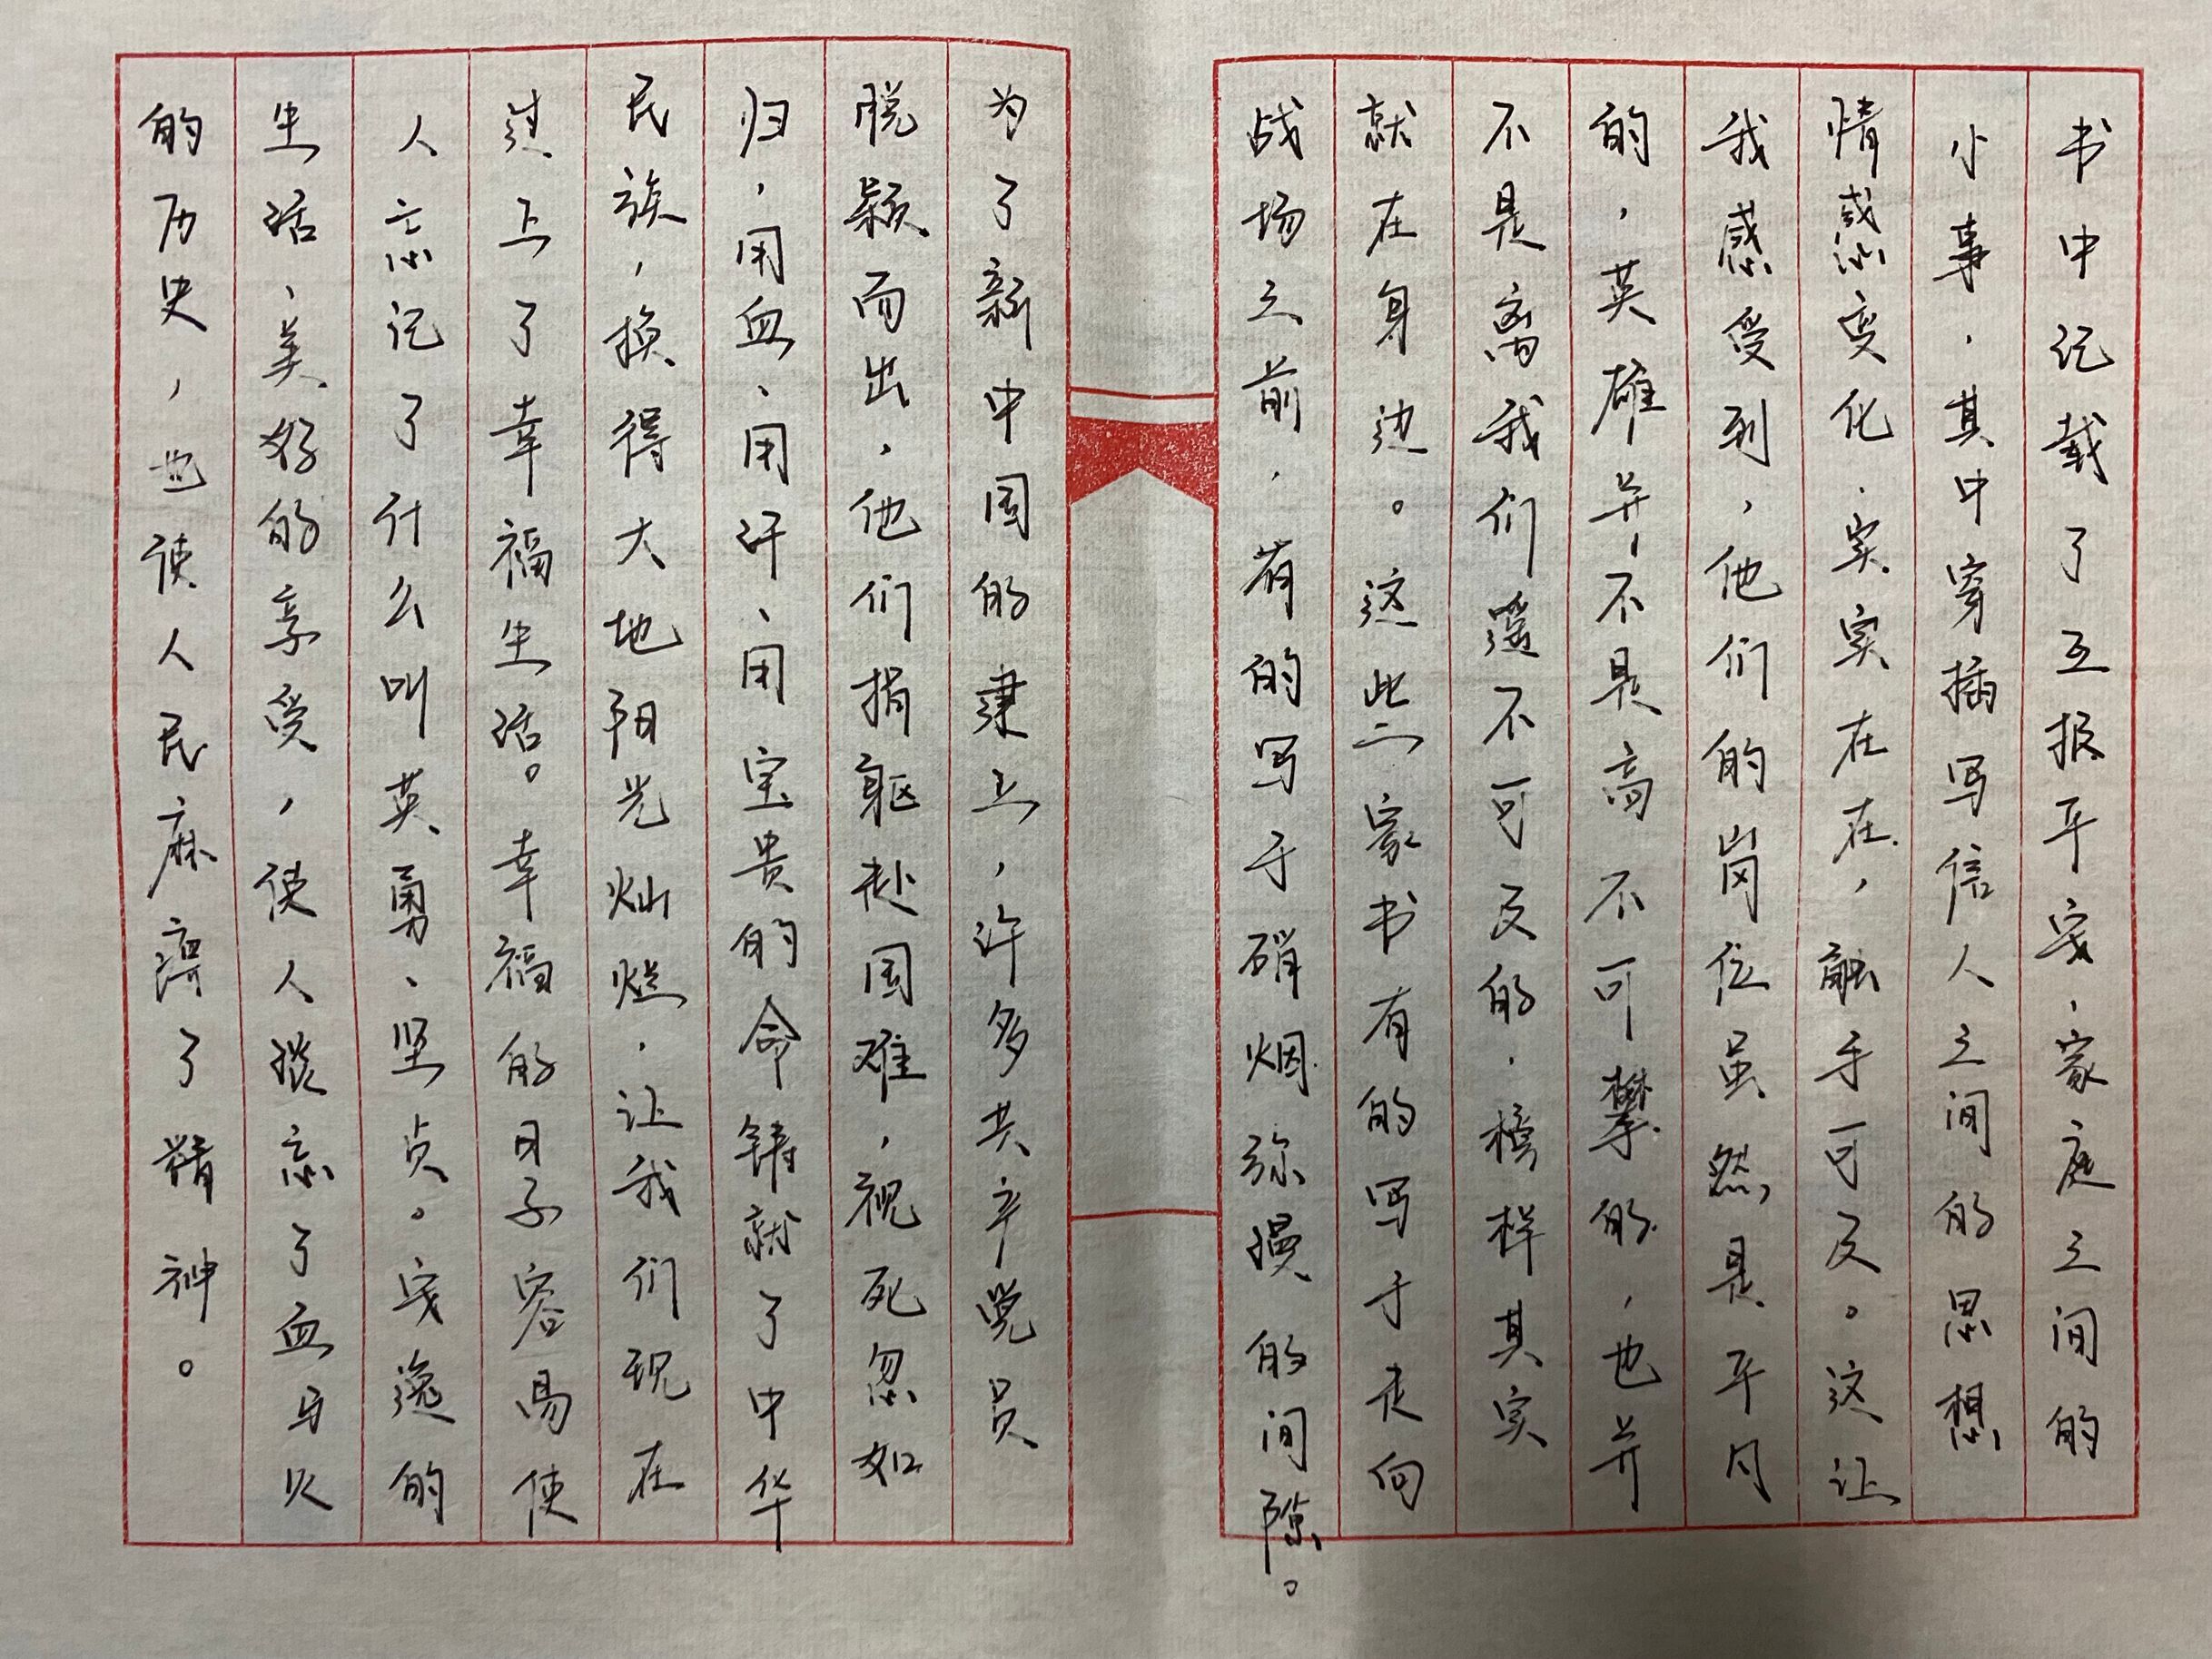 书中记载了互报平安、家庭之间的
小事，其中穿插写信人之间的思想
情感变化，实实在在，触手可及。这让
我感受到，他们的岗位虽然是平凡
的，英雄并不是高不可攀的，也并
不是离我们遥不可及的，榜样其实
就在身边。这些家书有的写于走向
战场之前，有的写于硝烟弥漫的间隙。
为了新中国的建立，许多共产党员
脱颖而出，他们捐躯赴国难，视死忽如
归，用血、用汗、用宝贵的命铸就了中华
民族，换得大地阳光灿烂，让我们现在
过上了幸福生活。幸福的日子容易使
人忘记了什么叫英勇、坚贞。安逸的
生活、美好的享受，使人淡忘了血与火
的历史，也使人民麻痹了精神。